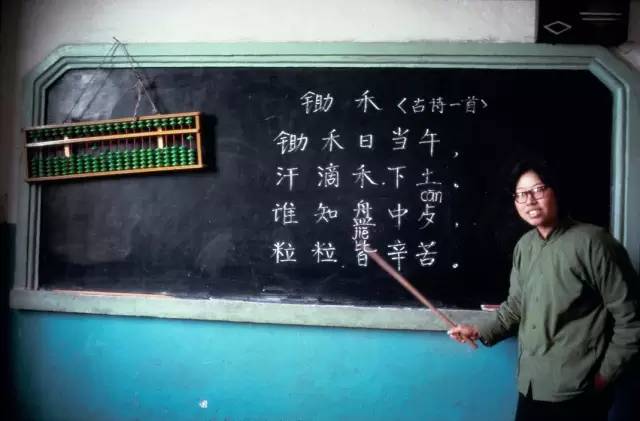 锄 禾 〈古诗一首〉
锄 禾 日 当 午，
汗 滴 禾 下 土。
cān
谁 知 盘 中 歺，
粒 粒 皆 辛 苦。